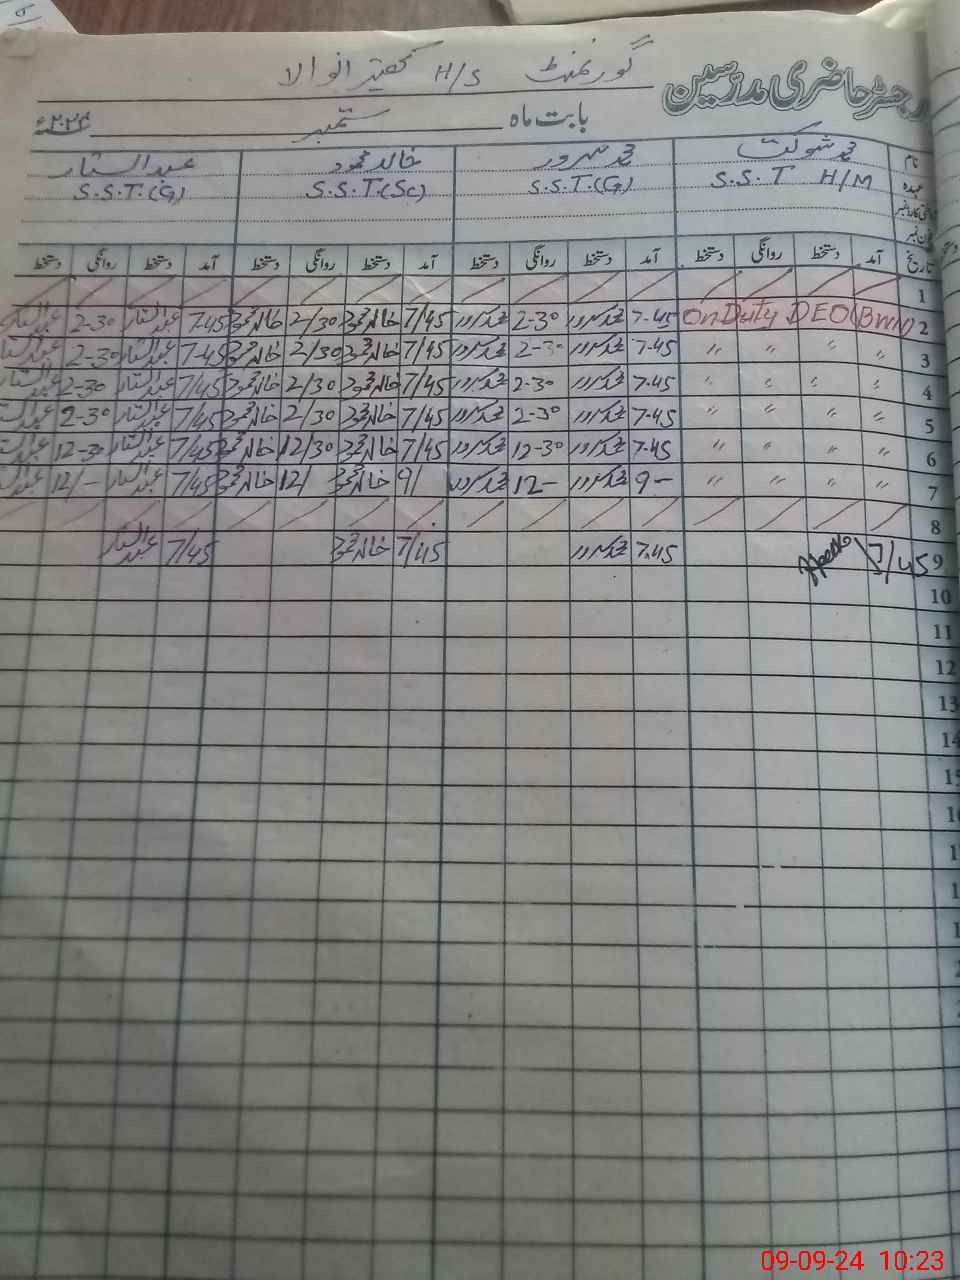 رجسٹر حاضری مدرسین گورنمنٹ H/S
بابت ماہ ستمبر ۲۰۲۴ء
نام محمد شوکت محمد سرور خالد محمود عبدالستار
عہدہ S.S.T H/M S.S.T.(G) S.S.T.(Sc) S.S.T.(G)
تاریخ آمد دستخط روانگی دستخط آمد دستخط روانگی دستخط آمد دستخط روانگی دستخط آمد دستخط روانگی دستخط
1
2 On Duty DEO(BWN) 7-45 محمد سرور 2-30 محمد سرور 7/45 خالد محمود 2/30 خالد محمود 7-45 عبدالستار 2-30 عبدالستار
3 " " " " 7-45 محمد سرور 2-30 محمد سرور 7/45 خالد محمود 2/30 خالد محمود 7-45 عبدالستار 2-30 عبدالستار
4 " " " " 7-45 محمد سرور 2-30 محمد سرور 7/45 خالد محمود 2/30 خالد محمود 7/45 عبدالستار 2-30 عبدالستار
5 " " " " 7-45 محمد سرور 2-30 محمد سرور 7/45 خالد محمود 2/30 خالد محمود 7/45 عبدالستار 2-30 عبدالستار
6 " " " " 7-45 محمد سرور 12-30 محمد سرور 7/45 خالد محمود 12/30 خالد محمود 7/45 عبدالستار 12-30 عبدالستار
7 " " " " 9- محمد سرور 12- محمد سرور 9/ خالد محمود 12/ خالد محمود 7/45 عبدالستار 12/- عبدالستار
8
9 7/45 7-45 محمد سرور 7/45 خالد محمود 7/45 عبدالستار
10
11
12
13
14
15
09-09-24 10:23